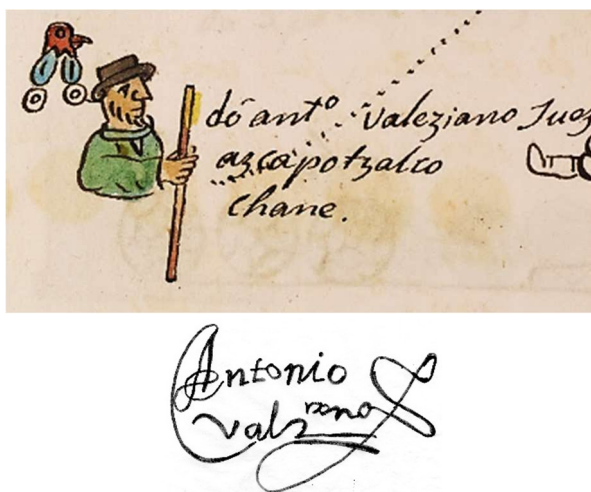 dō antº valeziano Juez
azcapotzalco
chane.
Antonio
valeriano